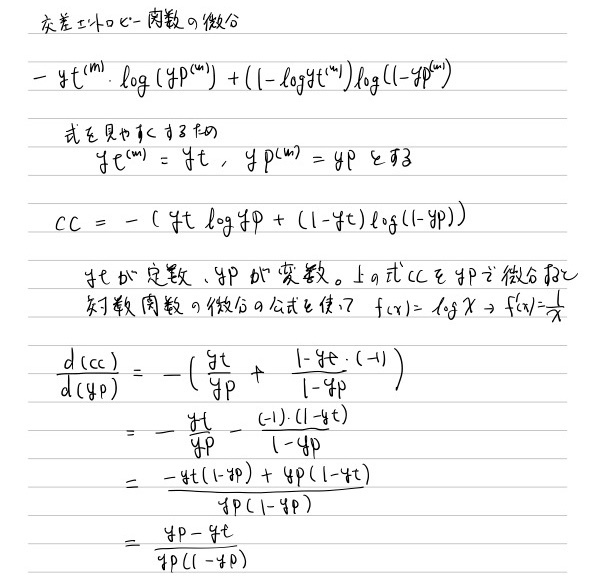 交差エントロピー関数の微分
- yt^(m)・log(yp^(m)) + (1-logyt^(m))log(1-yp^(m))
式を見やすくするため
yt^(m) = yt , yp^(m) = yp とする
CC = - ( yt log yp + (1-yt) log(1-yp))
ytが定数、ypが変数。上の式CCをypで微分すると
対数関数の微分の公式を使って f(x)= log x → f'(x)= 1/x
d(cc)/d(yp) = -( yt/yp + 1-yt・(-1)/1-yp )
= - yt/yp - (-1)・(1-yt)/1-yp
= -yt(1-yp) + yp(1-yt)/yp(1-yp)
= yp-yt/yp(1-yp)